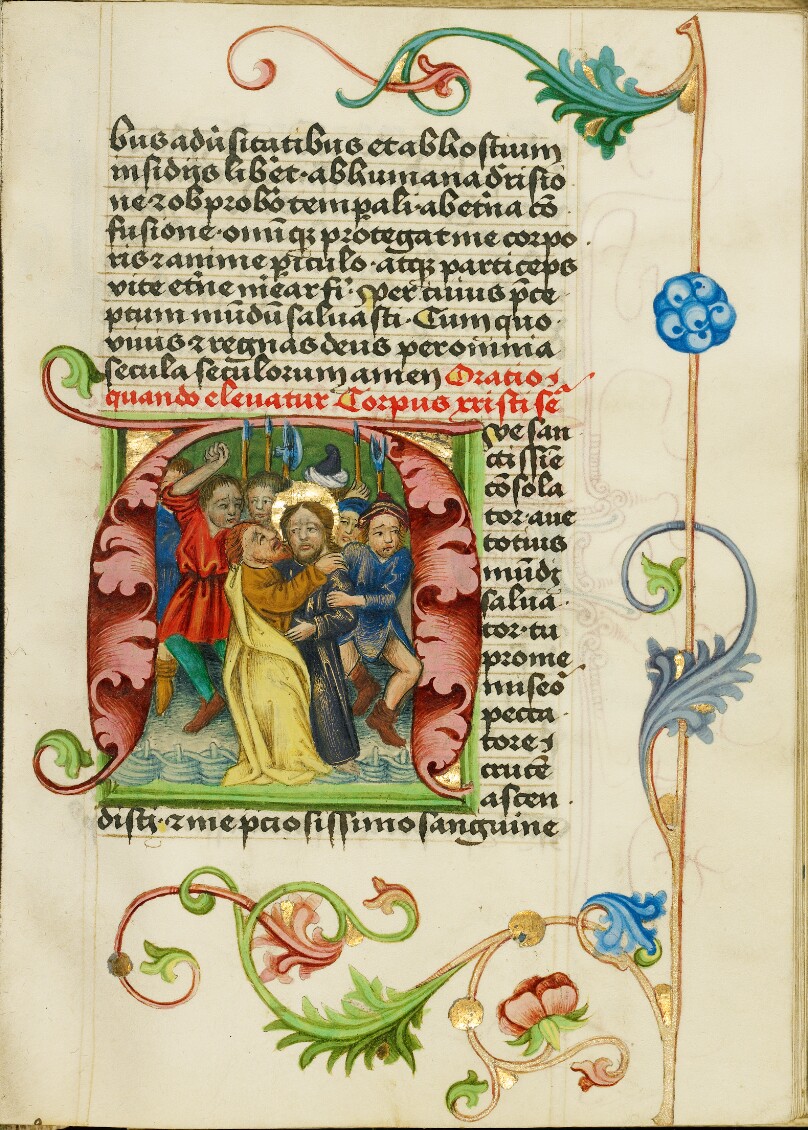 bus adūsitatibus et ab hostium
insidijs libēt · ab humana d̄risio
ne ⁊ obprobō temp̄ali · ab et̄na cō
fusione · om̄iq₃ protegat me corpo
ris ⁊ anime p̄iculo · atq₃ particeps
vite et̄ne
ptum mūdū saluasti · Cum quo
viuis ⁊ regnas deus per omnia
secula seculorum amen Oratio
quando eleuatur Corpus xristi
Aue san
ctissīe
cōsola
tor aue
totius
mūdi
salua
tor · tu
pro me
miseō
pecca
tore ı
crucē
ascen
disti · ⁊ me p̄ciosissimo sanguine